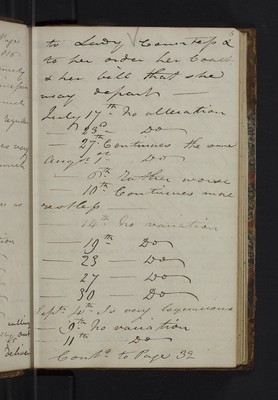 6
to Lady Countess &
to her order her Coach
& her bell that she
may depart —
July 17th No alteration
— 23d — Do
— 27th Continues the same
Augst 1st — Do
— 6th Rather worse
— 10th Continues more
restless
— 14th No variation
— 19th — Do
— 23 — Do
— 27 — Do
— 30 — Do
Septr 4th Is very
— 9th No variation
— 11th Do
Contd to Page 32